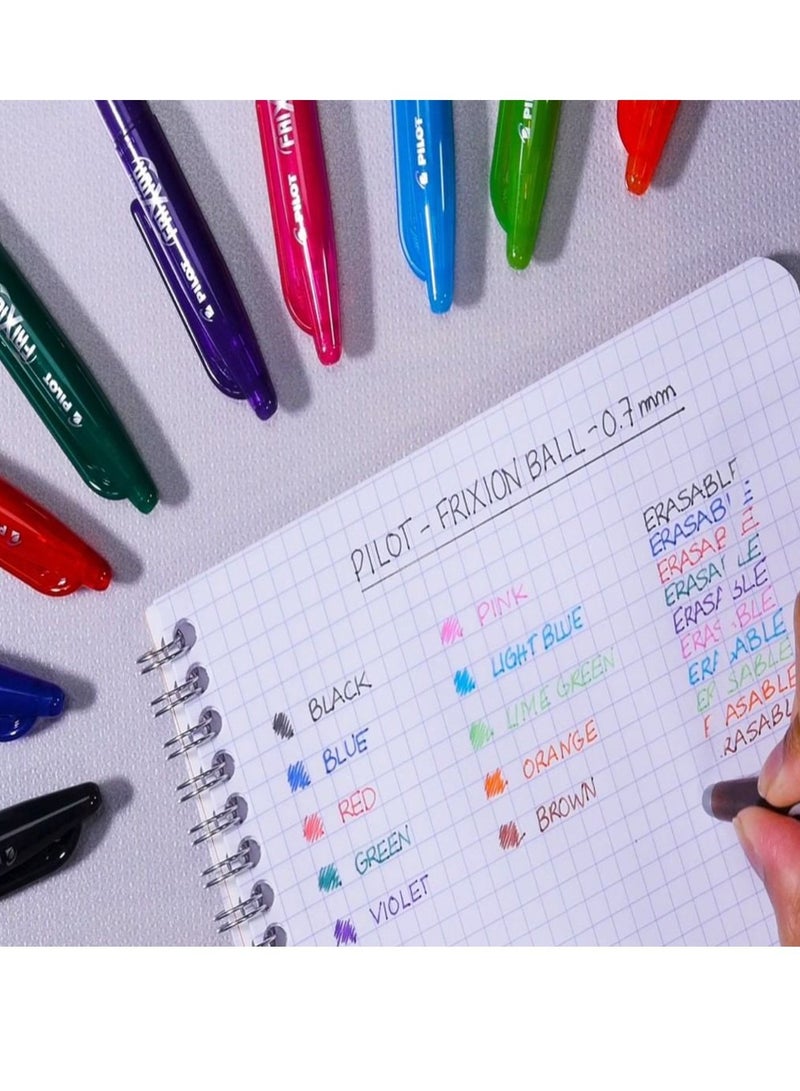 FRIXION PILOT
PILOT
PILOT
PILOT
PILOT - FRIXION BALL - 0.7mm
BLACK
BLUE
RED
GREEN
VIOLET
PINK
LIGHT BLUE
LIME GREEN
ORANGE
BROWN
ERASABLE
ERASAB E
ERASAB E
ERASA LE
ERASABLE
ERAS BLE
ERA ABLE
ER SABLE
ASABLE
RASABL